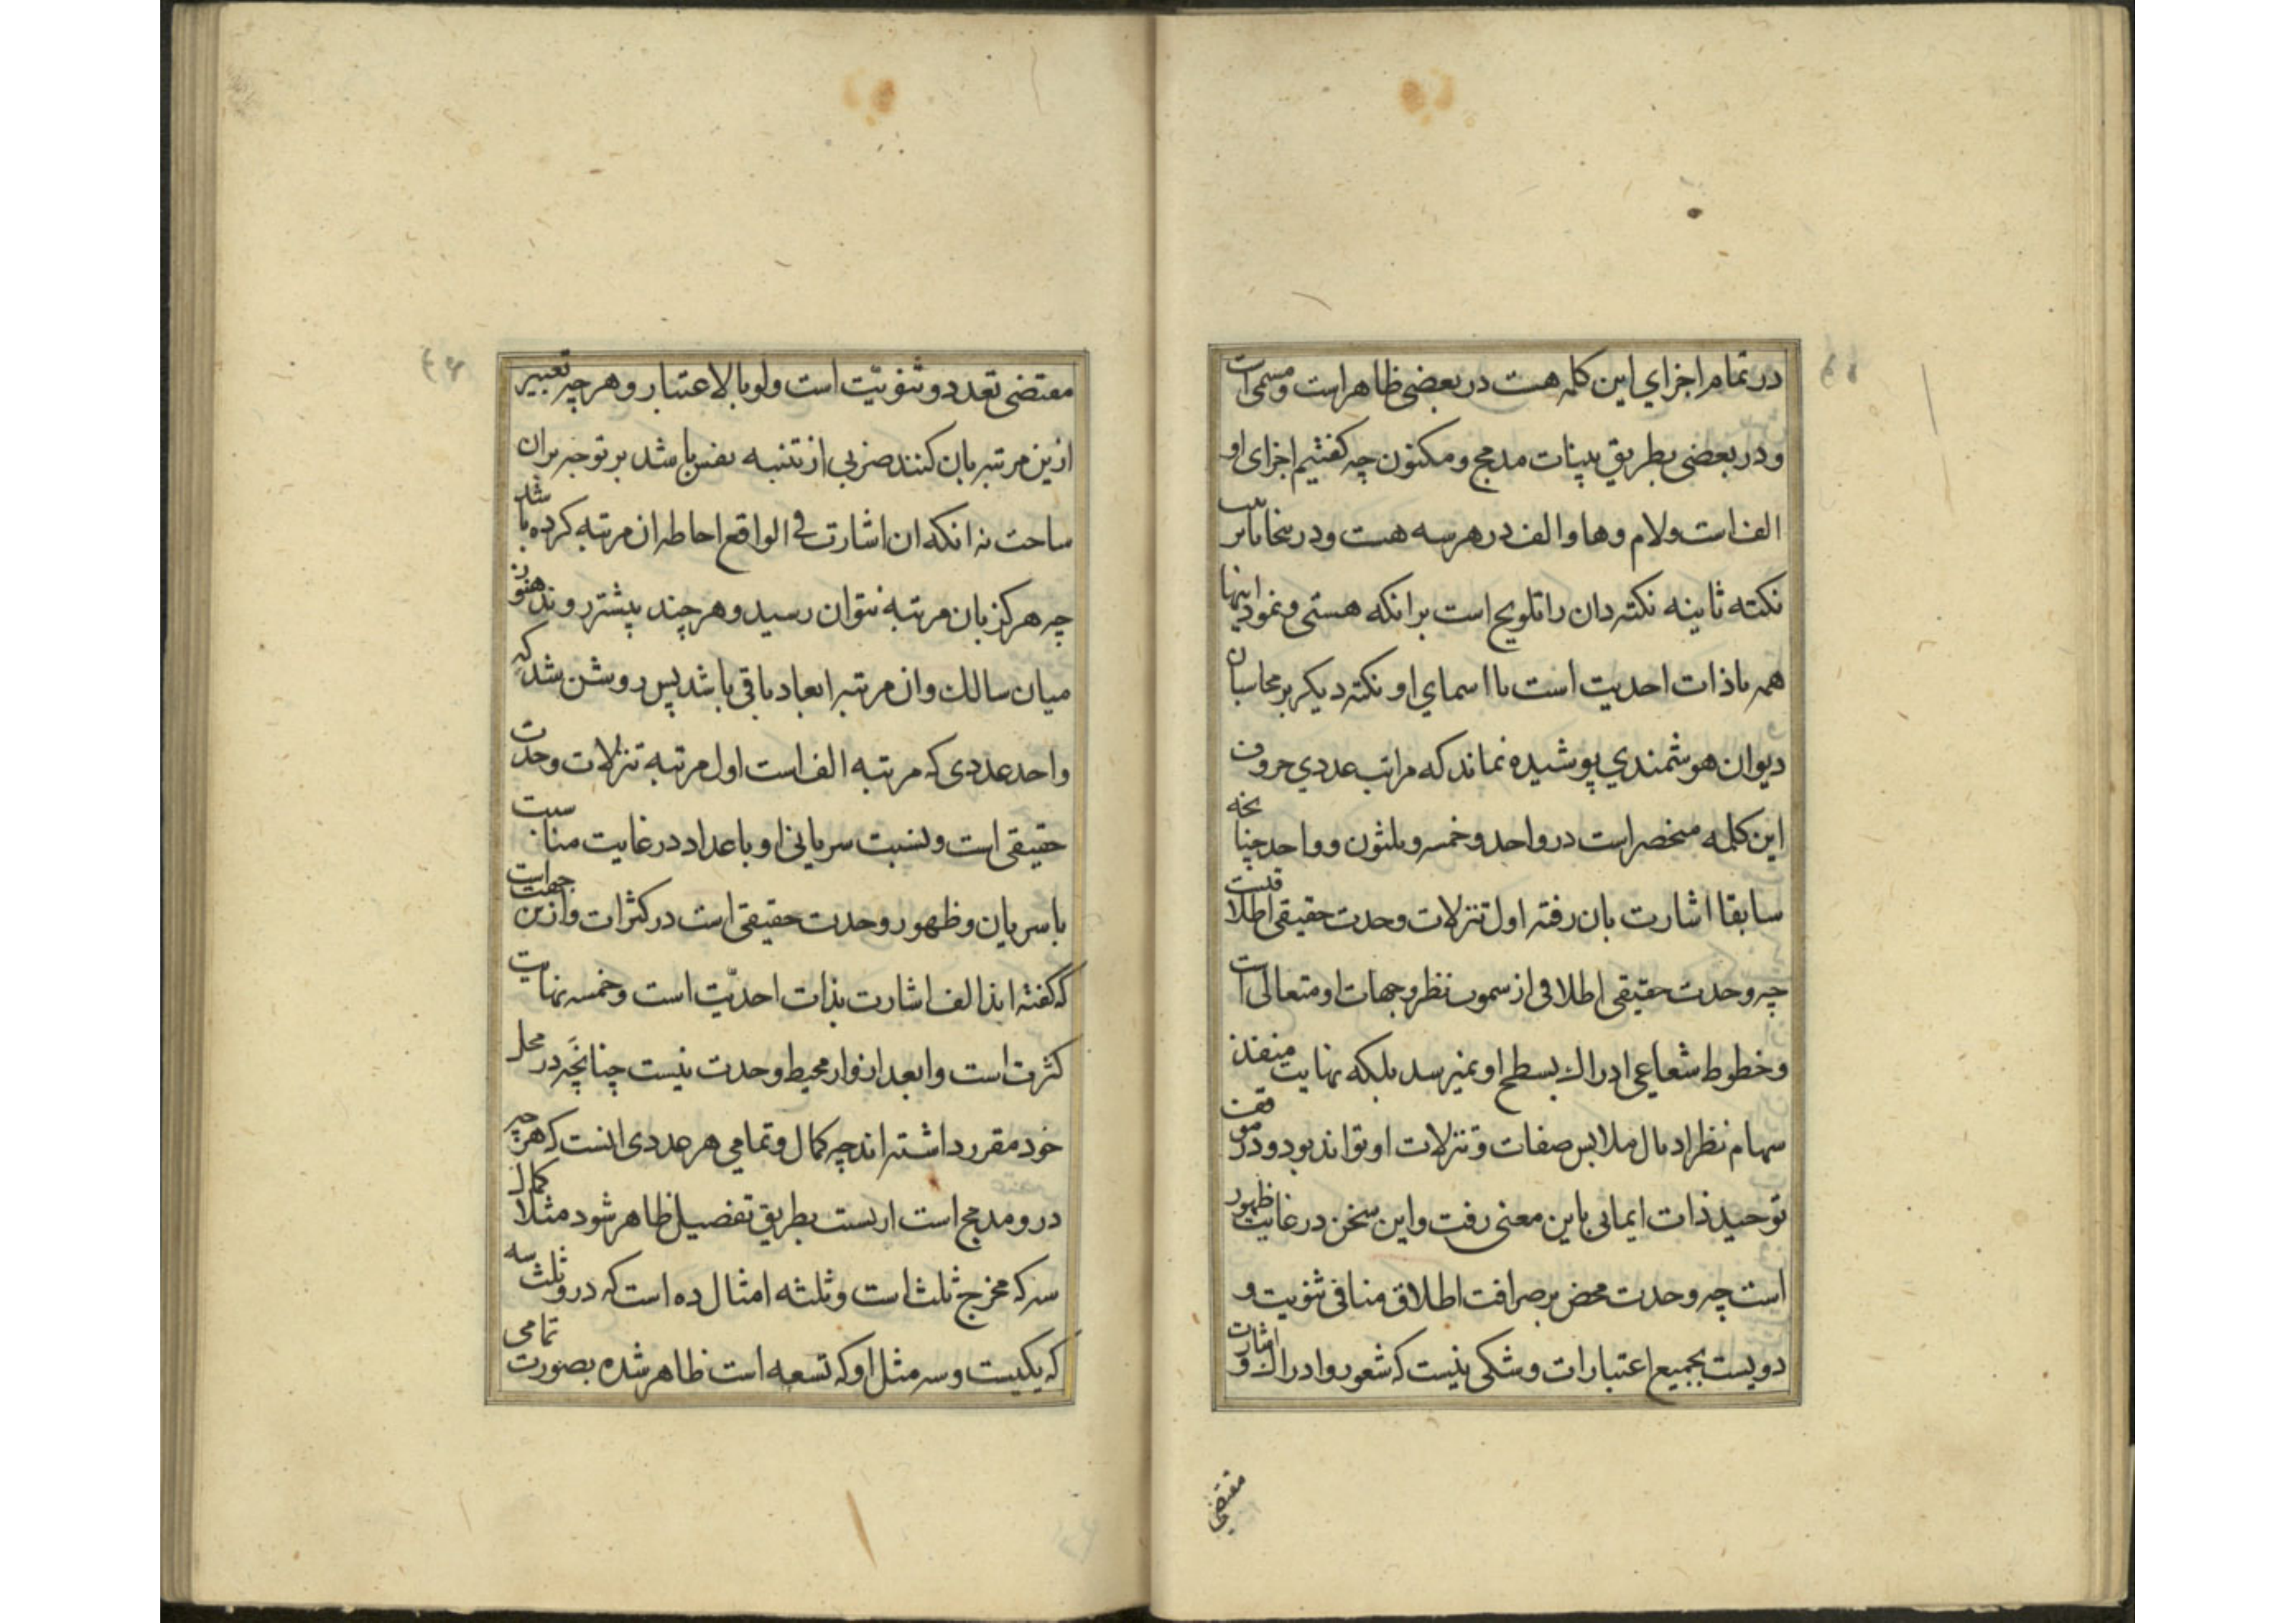 در تمام اجزاي اين كلمه هست در بعضى ظاهراست و مسمى است
و در بعضى بطريق بينات مدمج و مكنون چه كفتيم اجزاى او
الف است ولام وها والف در هر سه هست و در
نكته ثانيه نكته دان را تلويح است برانكه هستى و نمود اينها
همه باذات احديت است با اسماي او نكته ديكر بر محاسبان
ديوان هوشمندي پوشيده نماند كه مراتب عددي حروف
اين كلمه منحصر است در واحد و خمسه و ثلثون و واحد چنانچه
سابقا اشارت بان رفته اول تنزلات وحدت حقيقى اطلاقيست
چه وحدت حقيقى اطلاقى از سموت نظر و جهات او متعالى است
و خطوط شعاعي ادراك بسطح او نميرسد بلكه نهايت منفذ
سهام نظر اذيال ملابس صفات و تنزلات او تواند بود و در موقف
توحيد ذات ايمايى باين معنى رفت واين سخن در غايت ظهور
است چه وحدت محض بر صرافت اطلاق منافى ثنويت و
دويست بجميع اعتبارات و شكى نيست كه شعور و ادراك و اشارت
مقتضى
مقتضى تعدد و ثنويّت است ولو بالاعتبار و هر چه تعبير
ازين مرتبه بان كنند ضربي از تنبيه نفس باشد بر توجه بران
ساحت نه انكه ان اشارت في الواقع احاطه ان مرتبه كرده باشد
چه هركز بان مرتبه نتوان رسيد و هر چند پيشتر روند هنوز
ميان سالك وان مرتبه ابعاد باقى باشد پس روشن شد كه
واحد عددى كه مرتبه الف است اول مرتبه تنزلات وحدت
حقيقى است و نسبت سريانى او با عداد در غايت مناسبت
با سريان و ظهور وحدت حقيقى است در كثرات وازين جهت است
كه كفته اند الف اشارت بذات احديّت است و خمسه نهايت
كثرت است وابعد ادوار محيط وحدت نيست چنانچه در محل
خود مقرر داشته اند چه كمال و تمامي هر عددى انست كه هر چه
در و مدمج است ار بست بطريق تفصيل ظاهر شود مثلا كمال
سه كه مخرج ثلث است و ثلثه امثال ده است كه در و ثلث سه
كه يكيست و سه مثل او كه تسعه است ظاهر شده بصورت تمامى